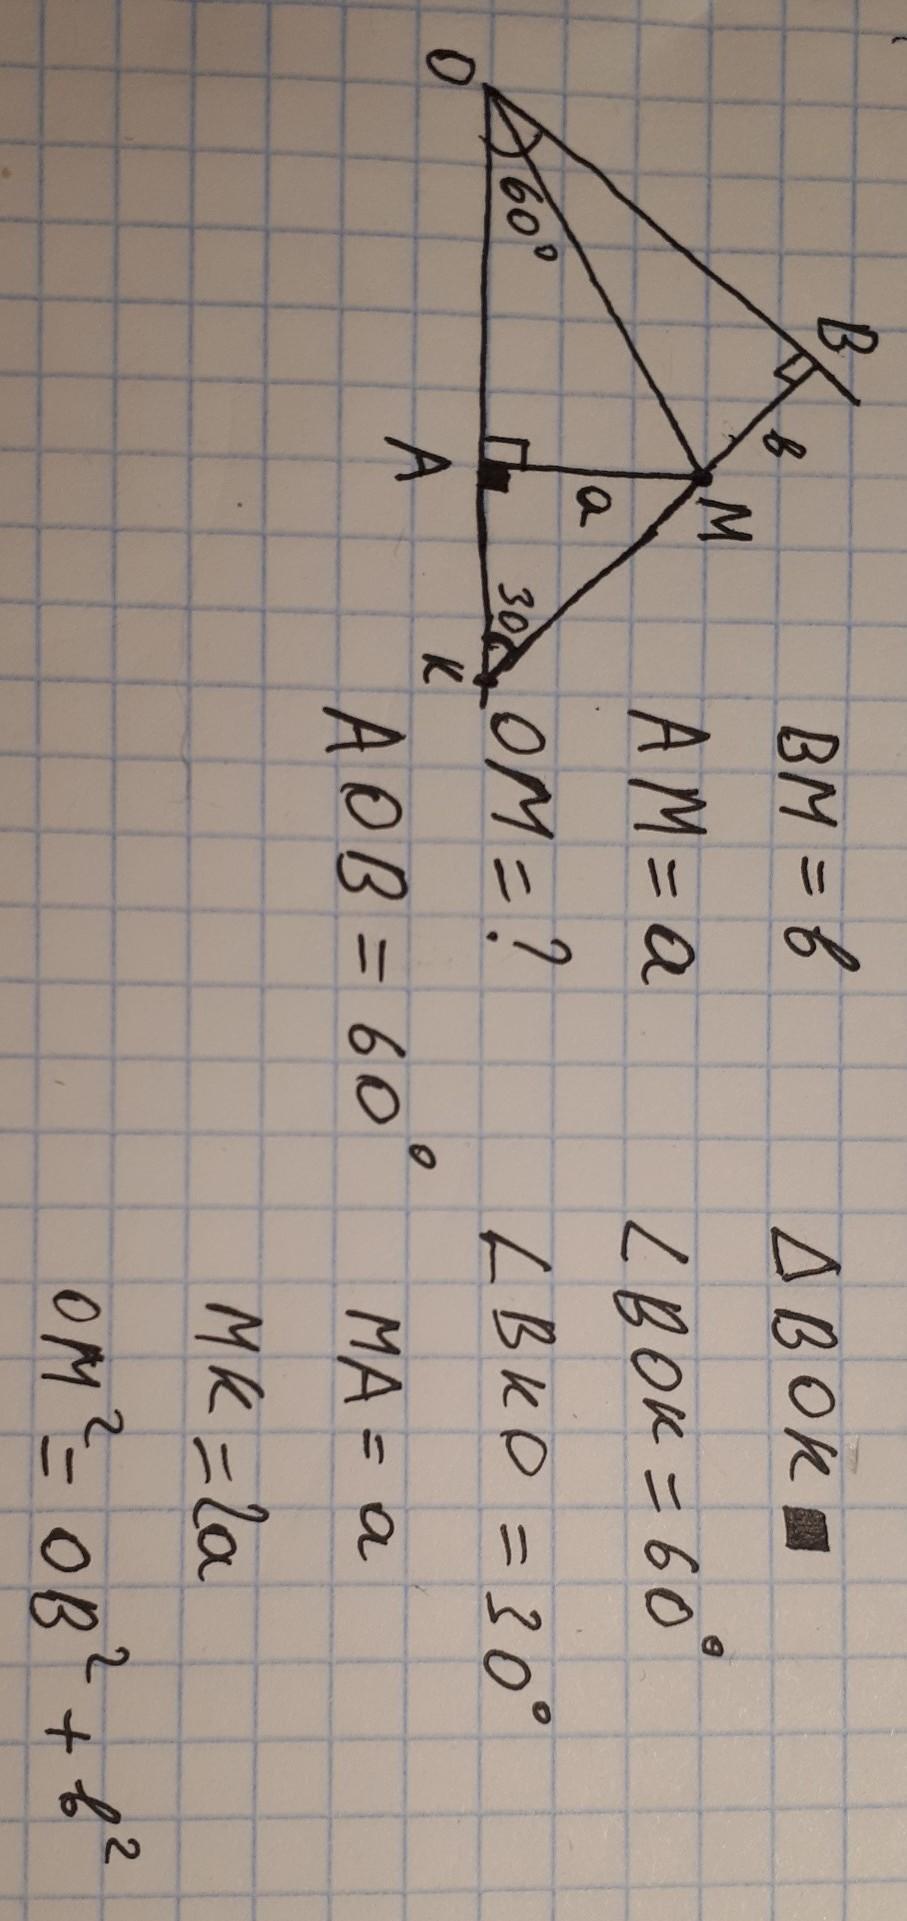 O
60°
B
в
M
a
A
30
K
BM = в
AM = a
OM = ?
AOB = 60°
Δ BOK
∠ BOK = 60°
∠ BKO = 30°
MA = a
MK = 2a
OM² = OB² + в²